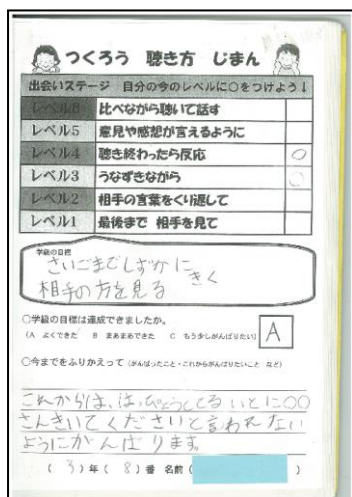 つくろう 聴き方 じまん
出会いステージ 自分の今のレベルに○をつけよう!
レベル6 比べながら聴いて話す
レベル5 意見や感想が言えるように
レベル4 聴き終わったら反応 ○
レベル3 うなずきながら ○
レベル2 相手の言葉をくり返して
レベル1 最後まで 相手を見て
学級の目標
さいごまでしずかに
きく
相手の方を見る
○学級の目標は達成できましたか。
(A よくできた B まあまあできた C もう少しがんばりたい) A
○今までをふりかえって (がんばったこと・これからがんばりたいこと など)
これからは、は、ぴょうしてるいとに○○
さんきいてくださいと言われない
ようにがんばります。
( 3 ) 年 ( 8 ) 番 名前 ( )